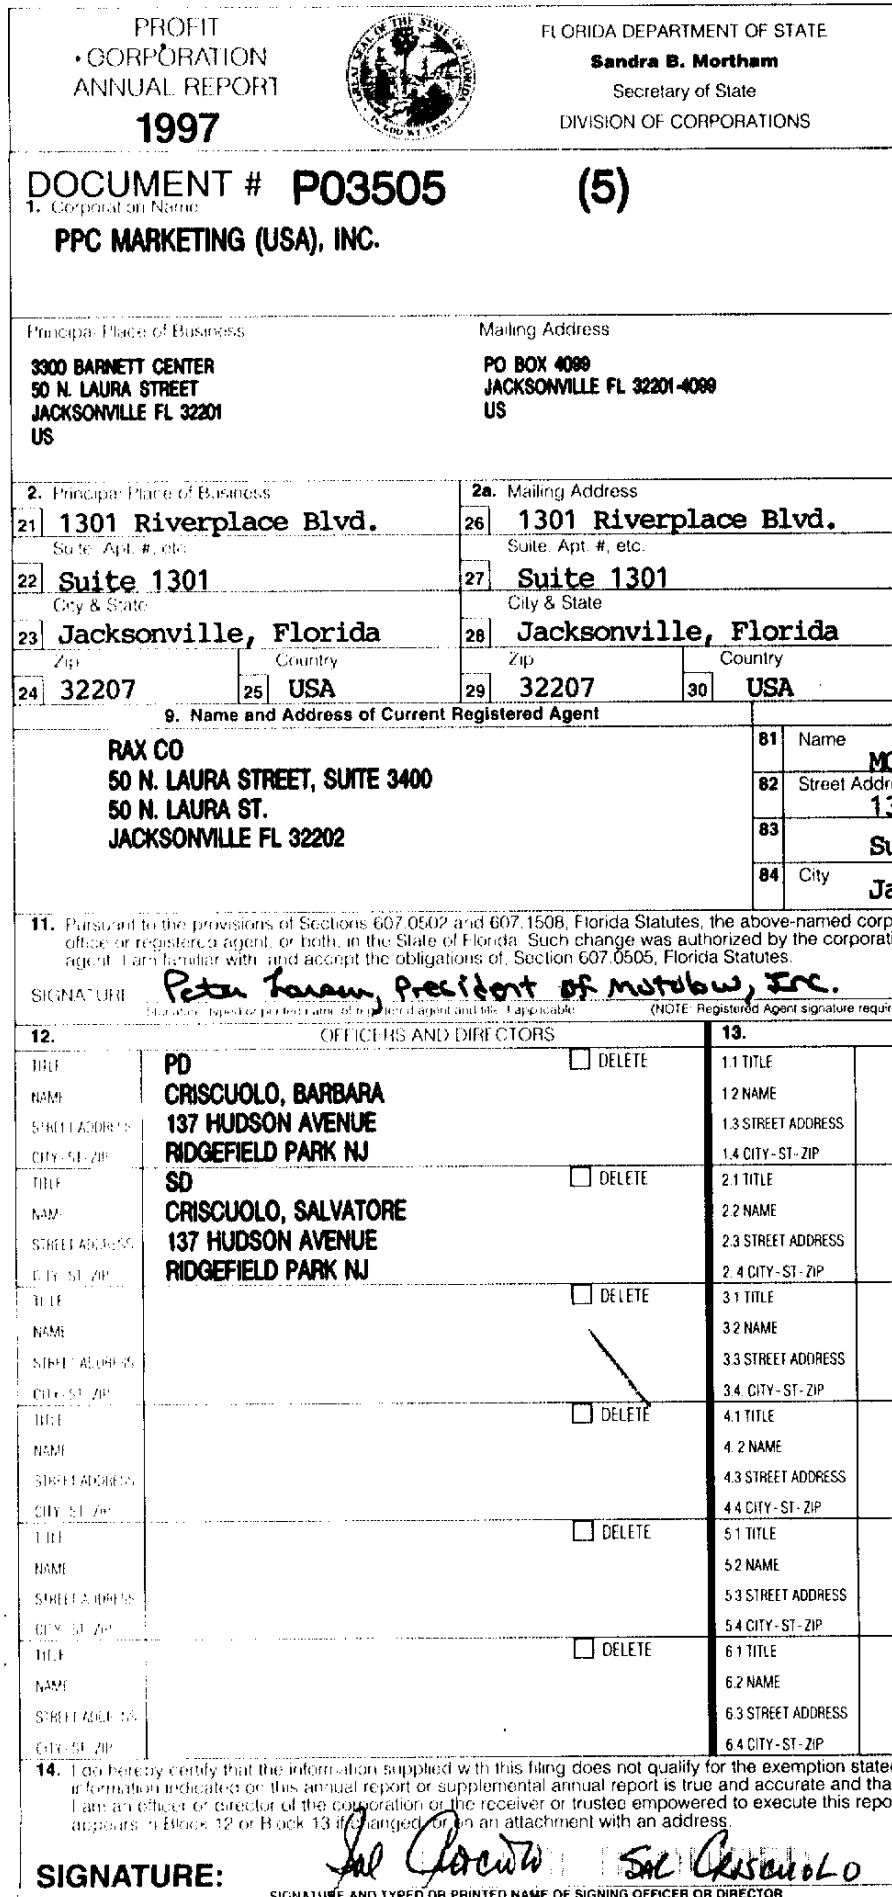 PROFIT
CORPORATION
ANNUAL REPORT
1997
GREAT SEAL OF THE STATE OF FLORIDA
IN GOD WE TRUST
FLORIDA DEPARTMENT OF STATE
Sandra B. Mortham
Secretary of State
DIVISION OF CORPORATIONS
DOCUMENT # P03505 (5)
1. Corporation Name
PPC MARKETING (USA), INC.
Principal Place of Business
3300 BARNETT CENTER
50 N. LAURA STREET
JACKSONVILLE FL 32201
US
Mailing Address
PO BOX 4099
JACKSONVILLE FL 32201-4099
US
2. Principal Place of Business
21 1301 Riverplace Blvd.
Suite, Apt. #, etc.
22 Suite 1301
City & State
23 Jacksonville, Florida
Zip Country
24 32207 25 USA
2a. Mailing Address
26 1301 Riverplace Blvd.
Suite, Apt. #, etc.
27 Suite 1301
City & State
28 Jacksonville, Florida
Zip Country
29 32207 30 USA
9. Name and Address of Current Registered Agent
RAX CO
50 N. LAURA STREET, SUITE 3400
50 N. LAURA ST.
JACKSONVILLE FL 32202
81 Name
MO
82 Street Addr
13
83
Su
84 City
Ja
11. Pursuant to the provisions of Sections 607.0502 and 607.1508, Florida Statutes, the above-named corp
office or registered agent, or both, in the State of Florida. Such change was authorized by the corporati
agent. I am familiar with, and accept the obligations of, Section 607.0505, Florida Statutes.
SIGNATURE Peter Larsen, President of Motolaw, Inc.
Signature, typed or printed name of registered agent and title if applicable (NOTE: Registered Agent signature requir
12. OFFICERS AND DIRECTORS 13.
TITLE PD DELETE 1.1 TITLE
NAME CRISCUOLO, BARBARA 1.2 NAME
STREET ADDRESS 137 HUDSON AVENUE 1.3 STREET ADDRESS
CITY-ST-ZIP RIDGEFIELD PARK NJ 1.4 CITY-ST-ZIP
TITLE SD DELETE 2.1 TITLE
NAME CRISCUOLO, SALVATORE 2.2 NAME
STREET ADDRESS 137 HUDSON AVENUE 2.3 STREET ADDRESS
CITY-ST-ZIP RIDGEFIELD PARK NJ 2.4 CITY-ST-ZIP
TITLE DELETE 3.1 TITLE
NAME 3.2 NAME
STREET ADDRESS 3.3 STREET ADDRESS
CITY-ST-ZIP 3.4. CITY-ST-ZIP
TITLE DELETE 4.1 TITLE
NAME 4.2 NAME
STREET ADDRESS 4.3 STREET ADDRESS
CITY-ST-ZIP 4.4 CITY-ST-ZIP
TITLE DELETE 5.1 TITLE
NAME 5.2 NAME
STREET ADDRESS 5.3 STREET ADDRESS
CITY-ST-ZIP 5.4 CITY-ST-ZIP
TITLE DELETE 6.1 TITLE
NAME 6.2 NAME
STREET ADDRESS 6.3 STREET ADDRESS
CITY-ST-ZIP 6.4 CITY-ST-ZIP
14. I do hereby certify that the information supplied with this filing does not qualify for the exemption state
information indicated on this annual report or supplemental annual report is true and accurate and tha
I am an officer or director of the corporation or the receiver or trustee empowered to execute this repo
appears in Block 12 or Block 13 if changed, or on an attachment with an address.
SIGNATURE: Sal Criscuolo SAL CRISCUOLO
SIGNATURE AND TYPED OR PRINTED NAME OF SIGNING OFFICER OR DIRECTOR